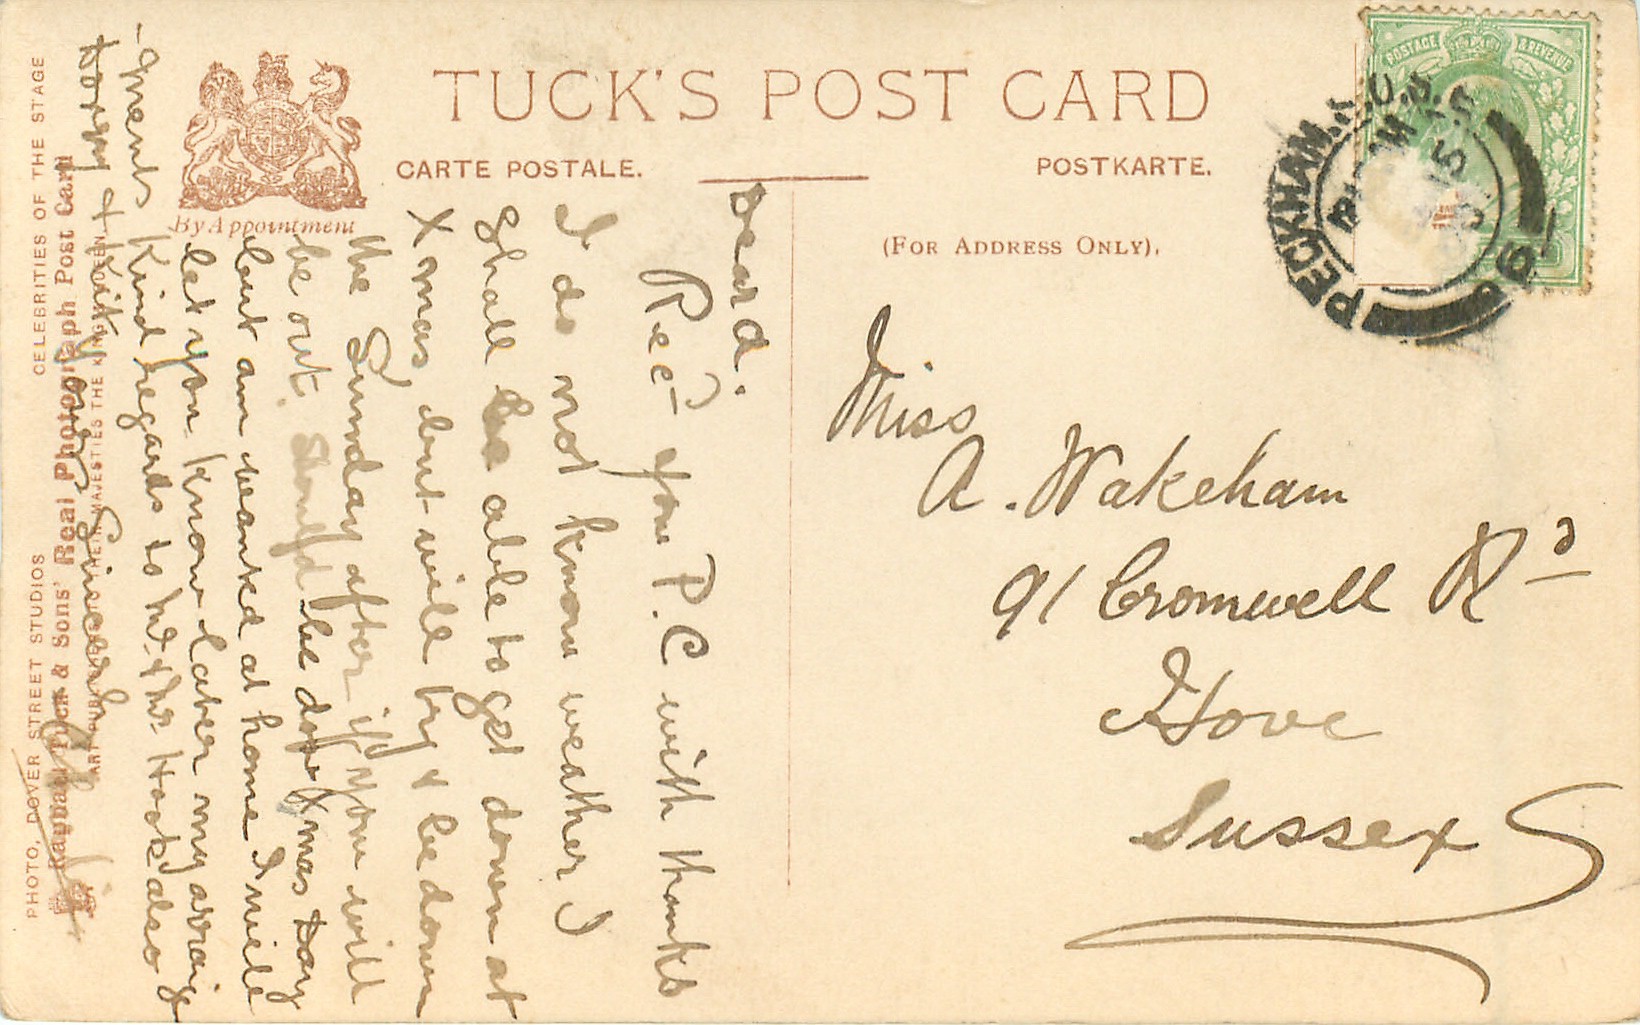 TUCK'S POST CARD
CARTE POSTALE.
POSTKARTE.
By Appointment
(FOR ADDRESS ONLY).
POSTAGE & REVENUE
PECKHAM
Miss
A. Wakeham
91 Cromwell Rd
Hove
Sussex
Dear d.
Rec'd your P.C with thanks
I do not know weather I
shall be able to get down at
Xmas, but will try & be down
the Sunday after if you will
be out. Should be down Xmas Day
but am wanted at home I will
let you know later my arraige
-ments Kind regards to Mr & Mrs Hook also
& Kit yours Sincerely
CELEBRITIES OF THE STAGE
PHOTO, DOVER STREET STUDIOS
Raphael Tuck & Sons' Real Photograph Post Card
ART PUBLISHERS TO THEIR MAJESTIES THE KING & QUEEN